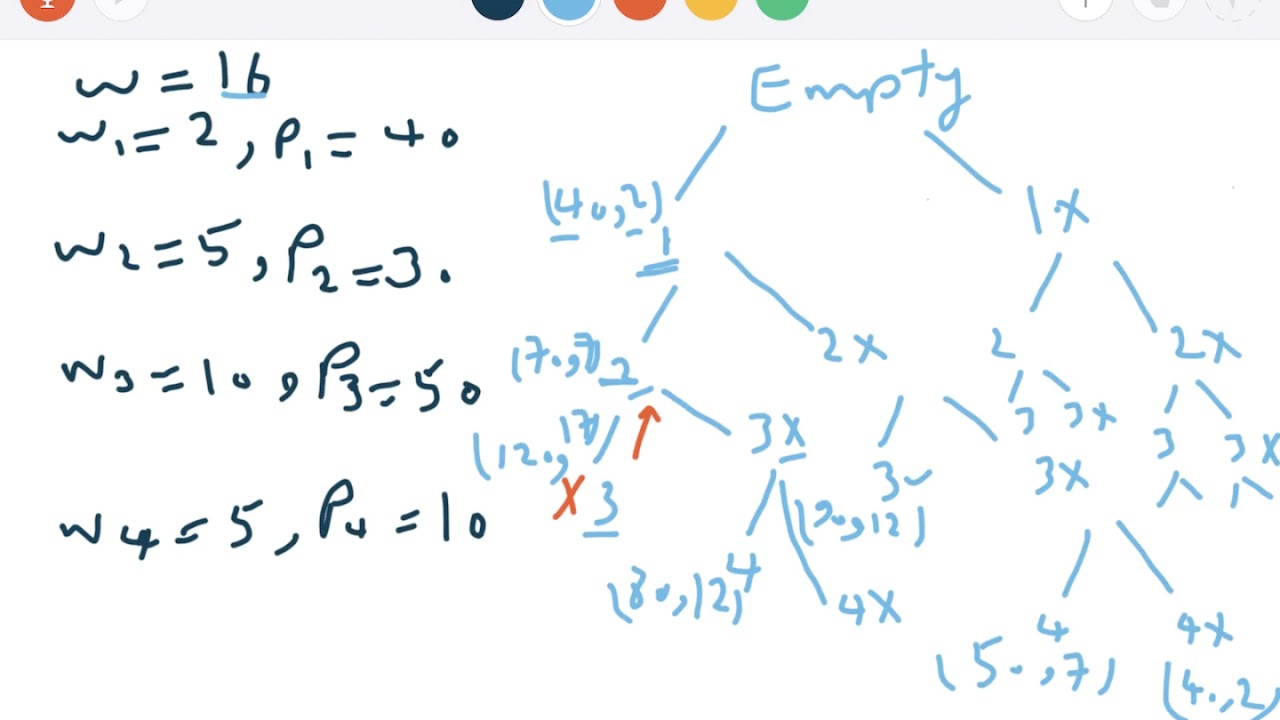 w = 16
w1 = 2, P1 = 40
w2 = 5, P2 = 30
w3 = 10, P3 = 50
w4 = 5, P4 = 10
Empty
(40,2)
1
1x
(70,7)
2
2x
2
2x
(120,17)
3x
3
3x
3
3x
x 3
3✓
3x
(90,12)
(80,12)
4
4x
4
4x
(50,7)
(40,2)